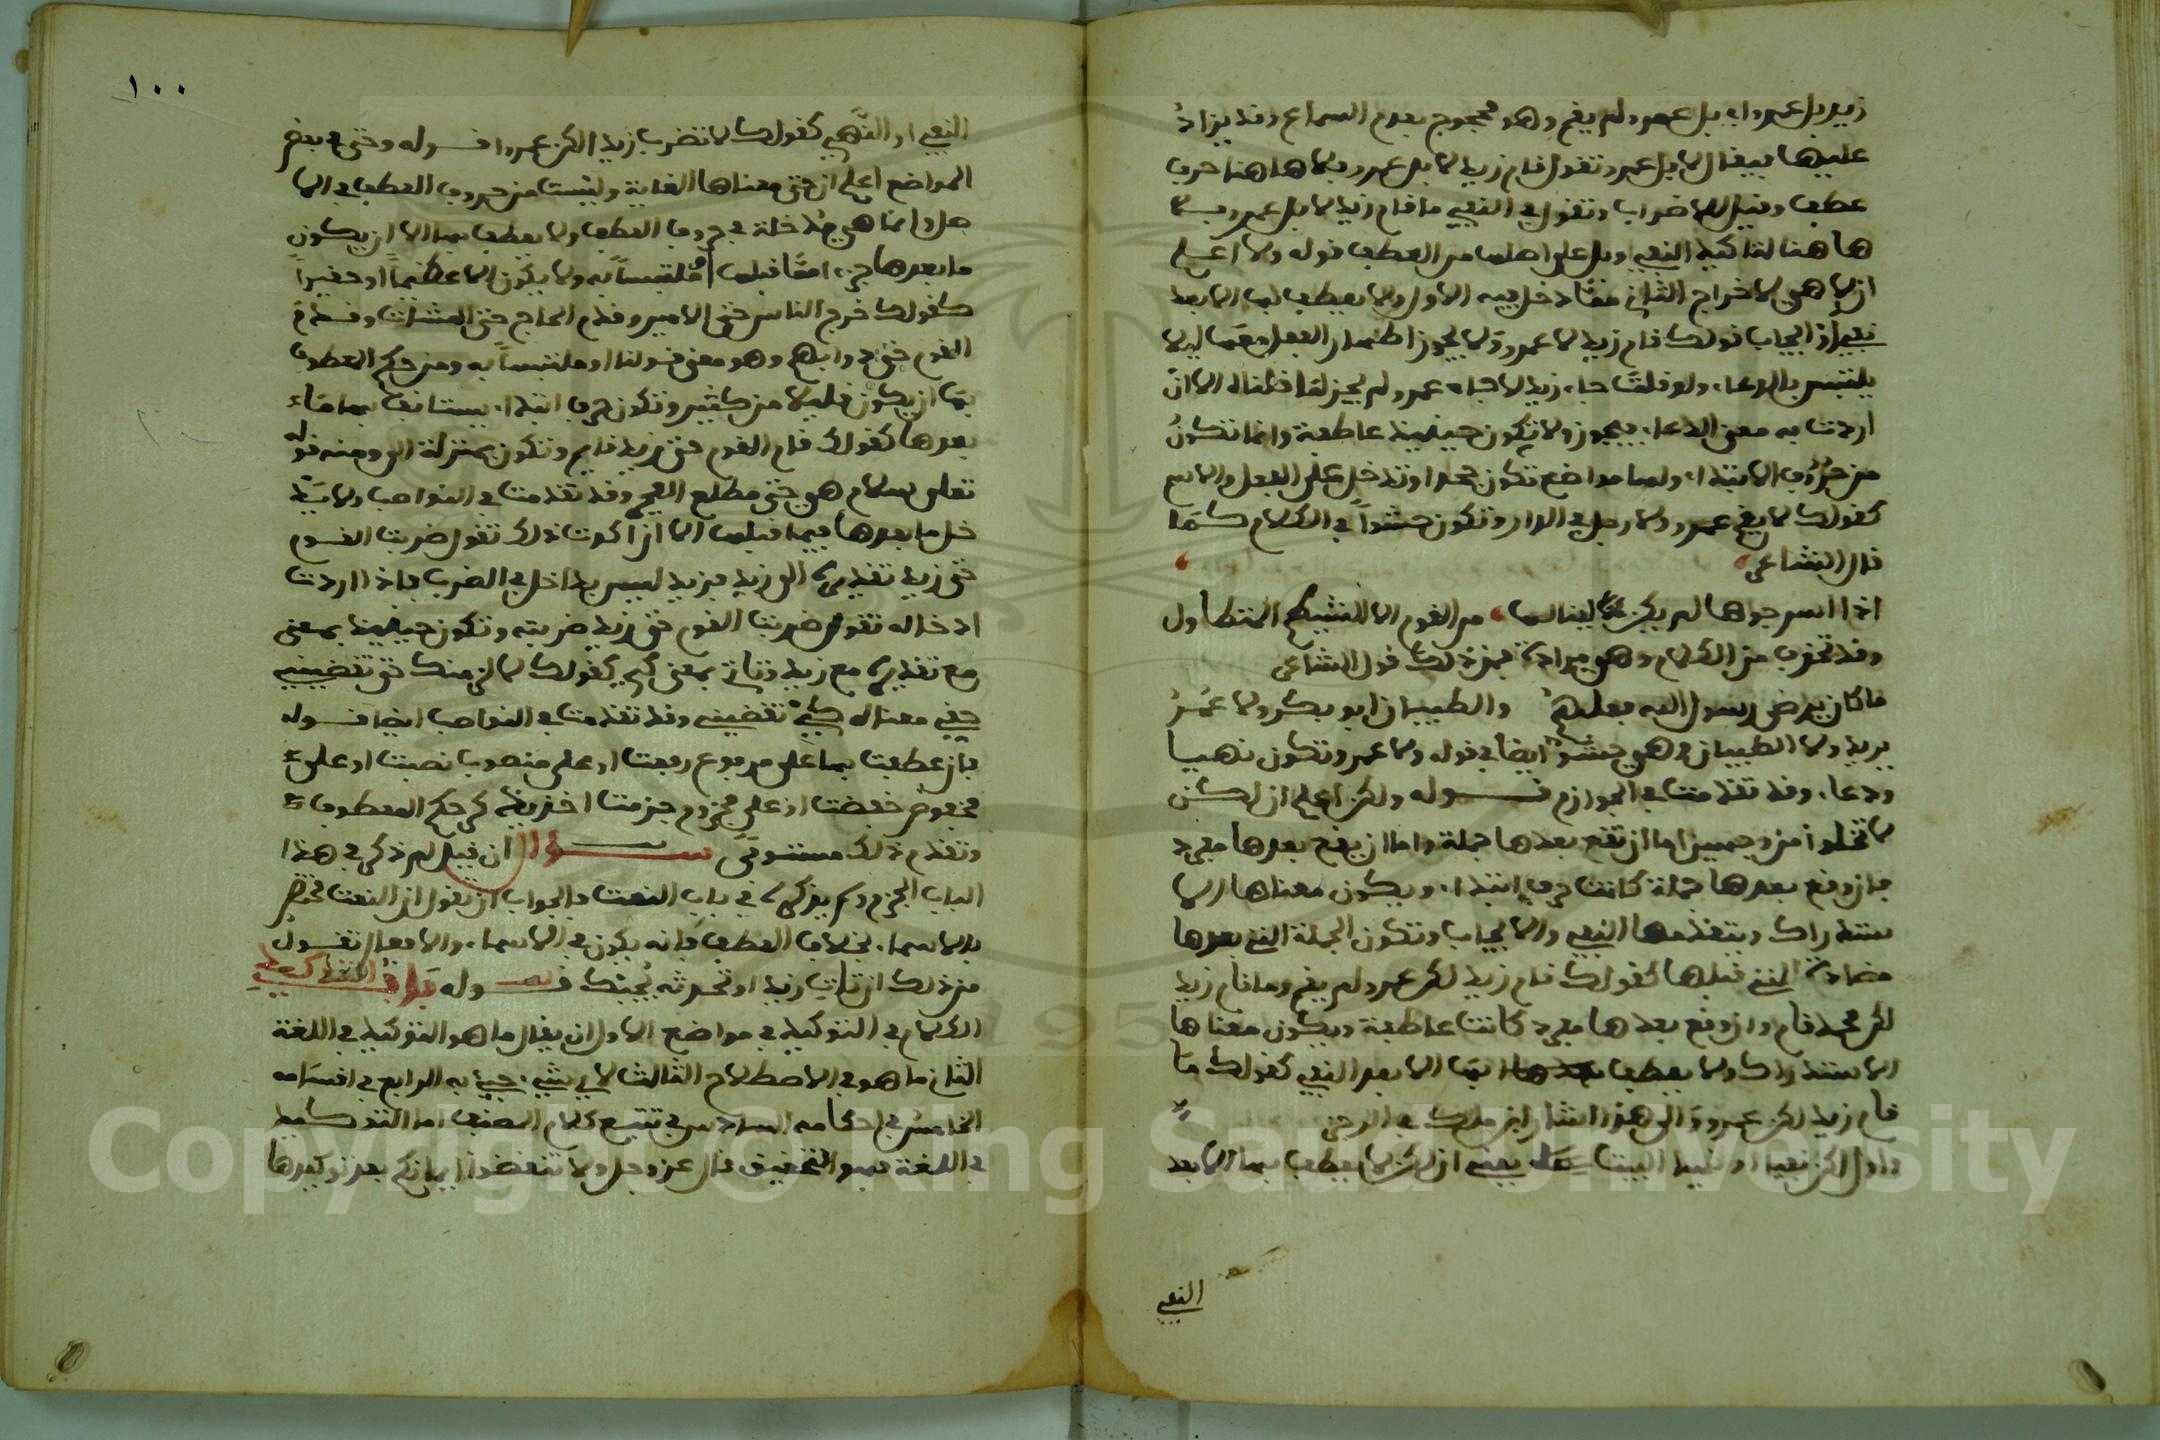 زيد بل عمرو اي بل عمرو لم يقم وهو محجوج بعدم السماع وقد يزاد
عليها فيقال لا بل عمرو تقول قام زيد لا بل عمرو فلا هاهنا حرف
عطف وقيل للاضراب وتقول في النفي ما قام زيد لا بل عمرو فلا
هاهنا لتاكيد النفي وبل على اصلها من العطف قوله ولا اعلم
ان لا هي لاخراج الثاني مما دخل فيه الاول ولا يعطف بها الا بعد
ايجاب قولك قام زيد لا عمرو ولا يجوز اظهار الفعل معها ليلا
يلتبس بالدعاء ولو قلت جاء زيد لا جاء عمرو لم يجز لما قلناه الا ان
اردت به معنى الدعاء فيجوز ولا تكون حينيذ عاطفة وانما تكون
من حروف الابتداء ولها مواضع تكون جحدا وتدخل على الفعل والاسم
كقولك لا يقم عمرو ولا رجل في الدار وتكون حشوا في الكلام كما
قال الشاعر
اذا اسرجوها لم يكن لينالها من القوم الا الشيظم المتطاول
وقد تحذف من الكلام وهي مرادة فمن ذلك قول الشاعر
ما كان يرضى رسول الله فعلهم والطيبان ابو بكر ولا عمر
يريد ولا الطيبان وهي حشو ايضا في قوله ولا عمر وتكون نهيا
ودعاء وقد تقدمت في الجوازم قوله ولكن اعلم ان لكن
لا تخلوا من وجهين اما ان تقع بعدها جملة واما ان يقع بعدها مفرد
فان وقع بعدها جملة كانت حرف ابتداء ويكون معناها الا
ستدراك ويتقدمها النفي والايجاب وتكون الجملة التي بعدها
مضادة التي قبلها كقولك قام زيد لكن عمرو لم يقم وما قام زيد
لكن محمد قام وان وقع بعدها مفرد كانت عاطفة ويكون معناها
الاستدراك ولا يعطف بها ايضا الا بعد النفي كقولك ما
قام زيد لكن عمرو والى هذا اشار ابن مالك في الرجز
واول لكن نفيا او نهيا البيت يعني ان لكن لا يعطف بها الا بعد
النفي
١٠٠
النفي او النهي كقولك لا تضرب زيدا لكن عمرا قوله وحتى في بعض
المواضع اعلم ان حتى معناها الغاية وليست من حروف العطف في الا
صل وانما هي مدخلة في حروف العطف ولا يعطف بها الا ان يكون
ما بعدها جزءا مما قبلها او ملتبسا به ولا يكون الا عظيما او حقيرا
كقولك خرج الناس حتى الامير وقدم الحاج حتى المشات وقدم
القوم حتى دوابهم وهو معنى قولنا او ملتبسا به ومن حكم المعطوف
بها ان يكون قليلا من كثير وتكون حرف ابتداء يستانف بها ما
بعدها كقولك قام القوم حتى زيد قايم وتكون بمنزلة الى ومنه قوله
تعلى سلام هي حتى مطلع الفجر وقد تقدمت في النواصب ولا يد
خل ما بعدها فيما قبلها الا ان اكدت ذلك تقول ضربت القوم
حتى زيد تقديره الى زيد فزيد ليس بداخل في الضرب فاذا اردت
ادخاله تقول ضربت القوم حتى زيد ضربته وتكون حينيذ بمعنى
مع تقديره مع زيد وتاتي بمعنى كي كقولك لا ازمنك حتى تقضيني
حقي معناه كي تقضيني وقد تقدمت في النواصب ايضا قوله
فان عطفت بها على مرفوع رفعت او على منصوب نصبت او على
مخفوض خفضت او على مجزوم جزمت اخذ يذكر حكم المعطوف
وتقدم ذلك مستوفى سؤال ان قيل لم ذكر في هذا
الباب الجزم ولم يذكره في باب النعت فالجواب ان نقول ان النعت مختص
بالاسماء بخلاف العطف فانه يكون في الاسماء والافعال تقول
من ذلك ان تات زيدا او تحدثه يجبك قوله باب التوكيد
الكلام في التوكيد في مواضع الاول ان يقال ما هو التوكيد في اللغة
الثاني ما هو في الاصطلاح الثالث لاي شيء جيء به الرابع في اقسامه
الخامس في احكامه السادس في تتبع كلام المصنف اما التوكيد
في اللغة فهو التحقيق قال عز وجل ولا تنقضوا الايمان بعد توكيدها